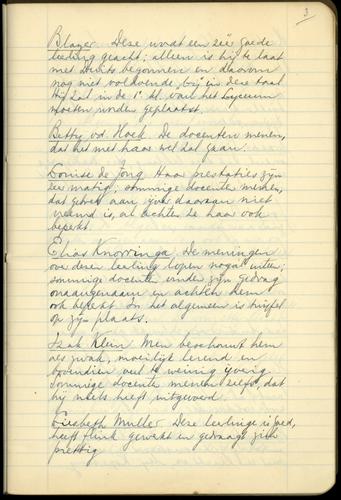 3
Blazer. Deze wordt een zéér goede
leerling geacht; alleen is hij te laat
met Duits begonnen en daarom
nog niet voldoende bij in deze taal
Hij zal in de 1e kl. van het Lyceum
moeten worden geplaatst.
Betty vd. Hoek. De docenten menen,
dat het met haar wel zal gaan.
Louise de Jong Haar prestaties zijn
zeer matig; sommige docenten menen,
dat gebrek aan ijver daaraan niet
vreemd is, al achten ze haar ook
beperkt.
Elias Knorringa De meningen
over deze leerling lopen nogal uiteen;
sommige docenten vinden zijn gedrag
onaangenaam en achten hem
ook beperkt. In het algemeen is twijfel
op zijn plaats.
Izak Klein Men beschouwt hem
als zwak, moeilijk lerend en
bovendien veel te weinig ijverig.
Sommige docenten menen zelfs, dat
hij niets heeft uitgevoerd.
Liesbeth Muller Deze leerlinge is goed,
heeft flink gewerkt en gedraagt zich
prettig